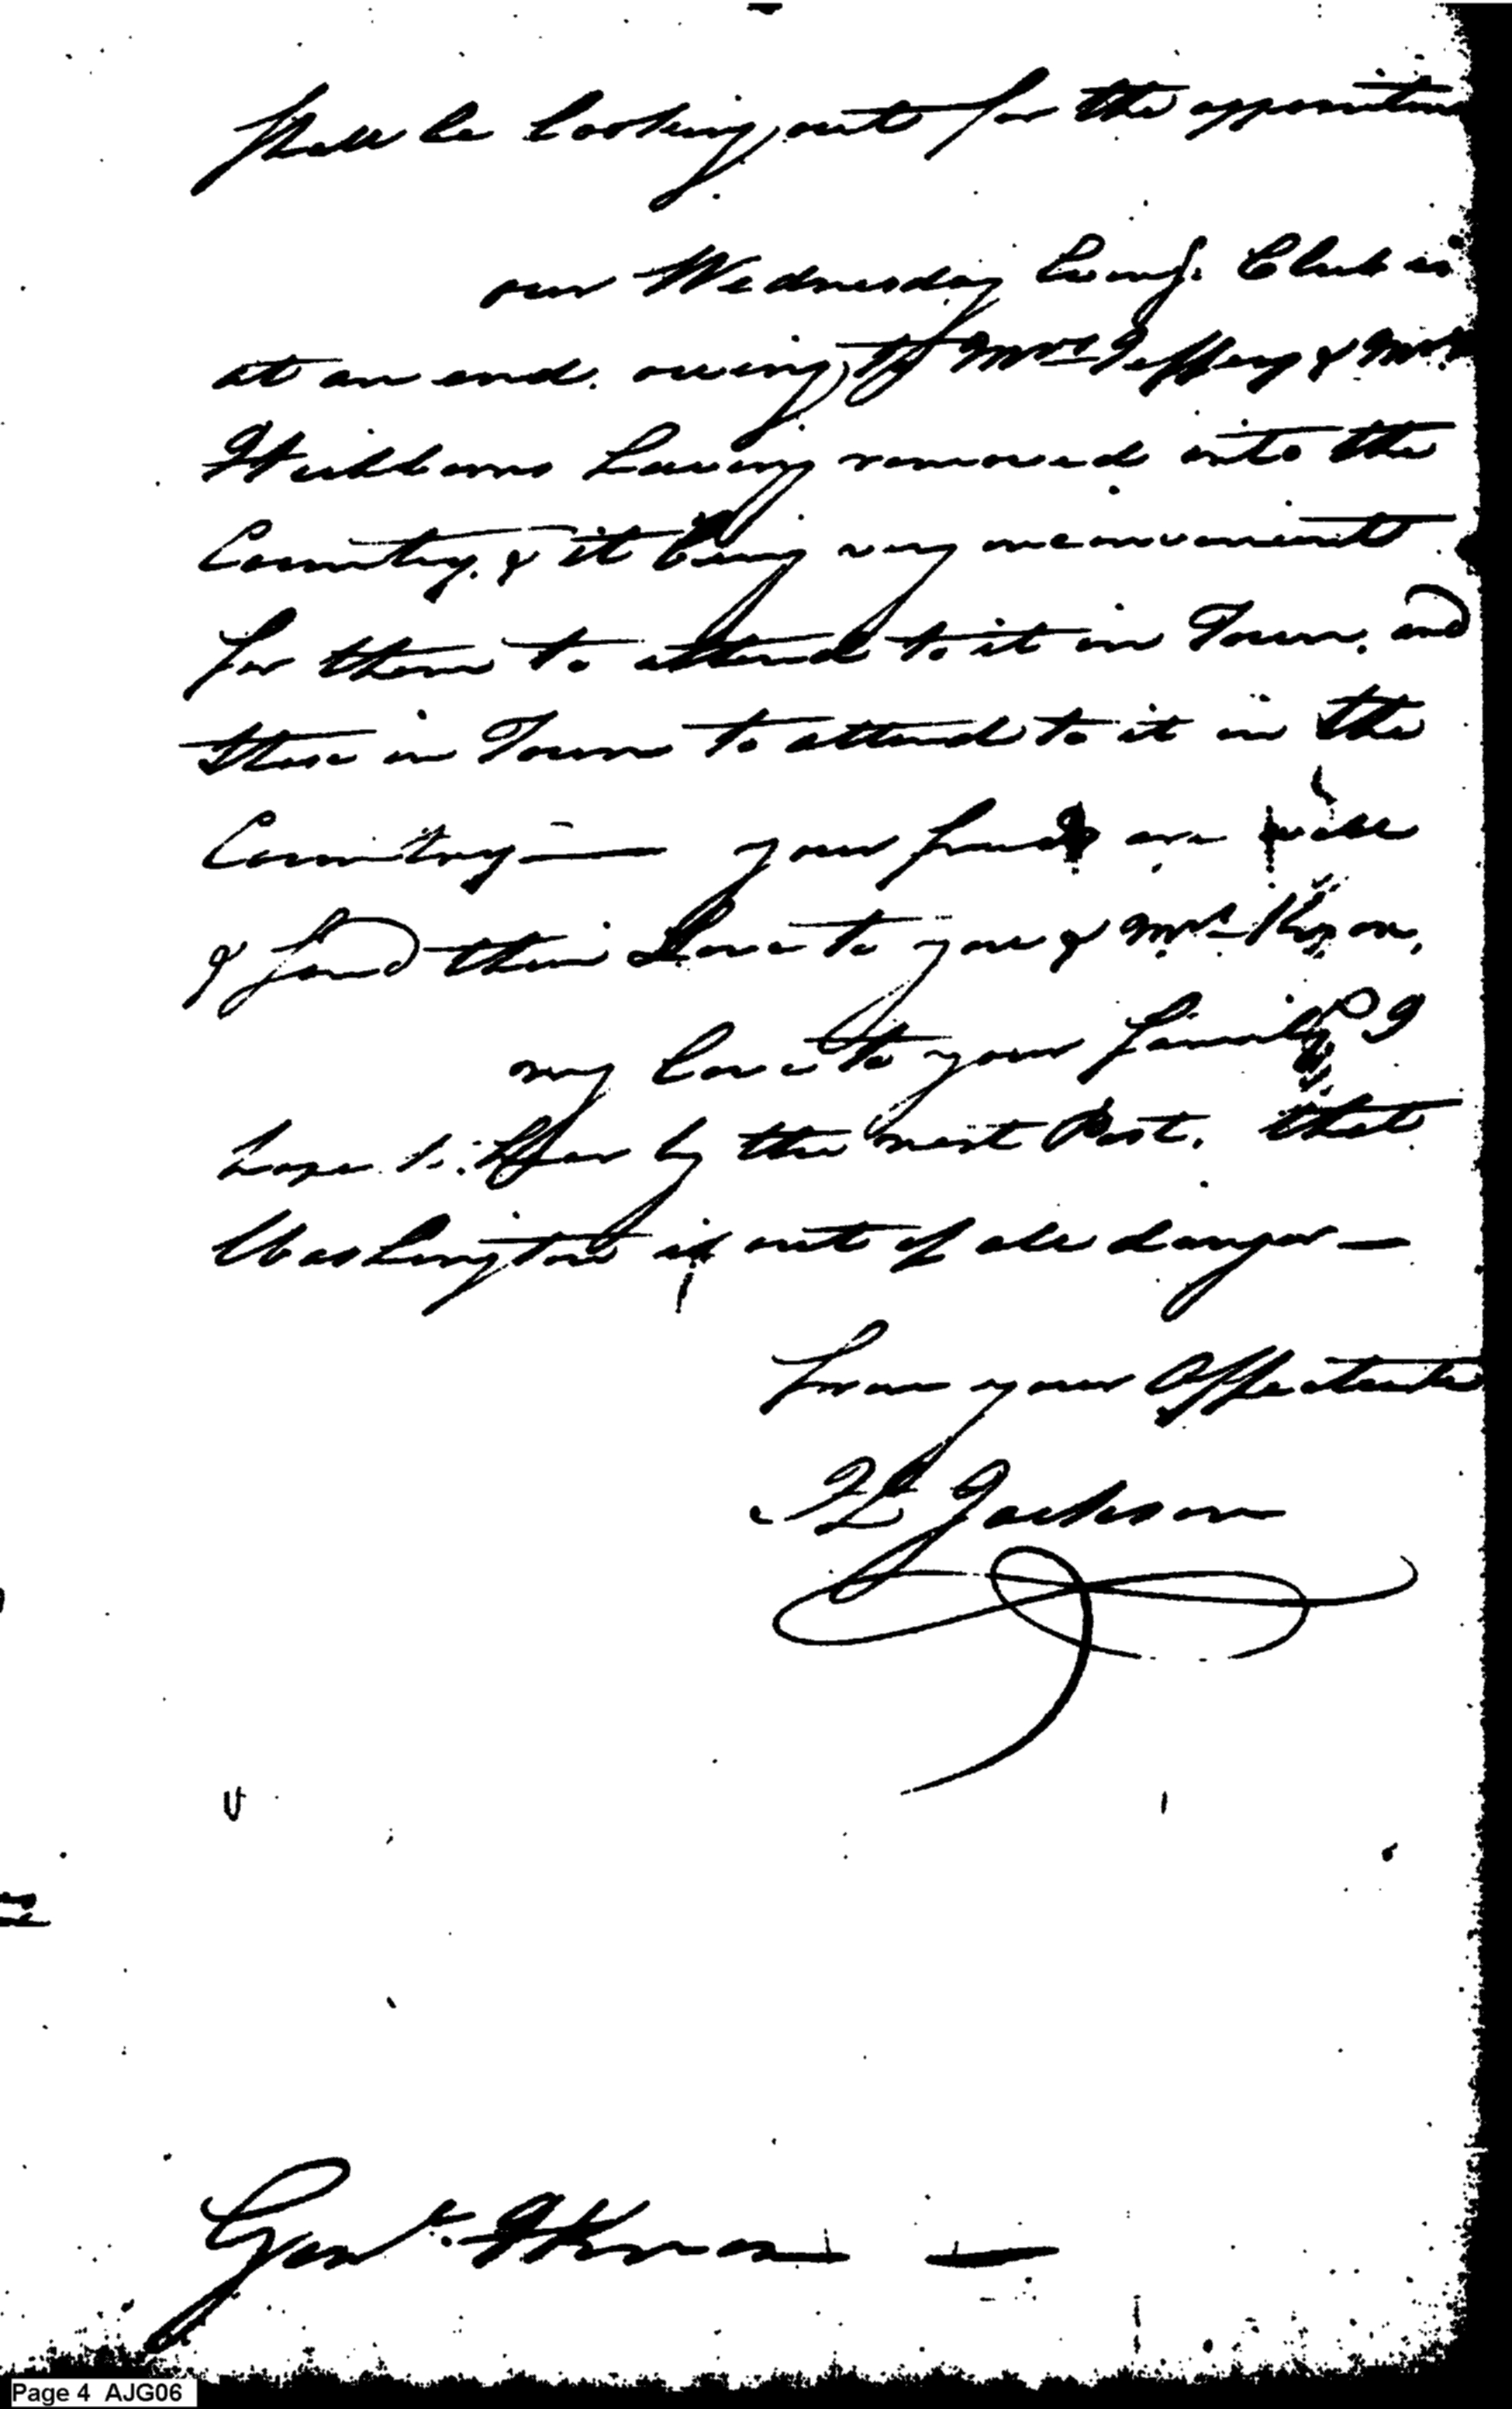 shall be looking out for the opportun
our Wednesday Eveng. Club is
at an end. owing to Mrs Jeffery & Mrs
Williams having removed into the
Country, & it being very inconvenient
for them to attend to it in Town, and
those in Town to attend to it in the
Country — your friends are well
& send their Love to you & Mrs Knox,
my Love to your family & I
hope to hear by the next Post. that
Washington is out of all danger —
from your Affectionate
H Jackson
Genl. H Knox —
Page 4 AJG06